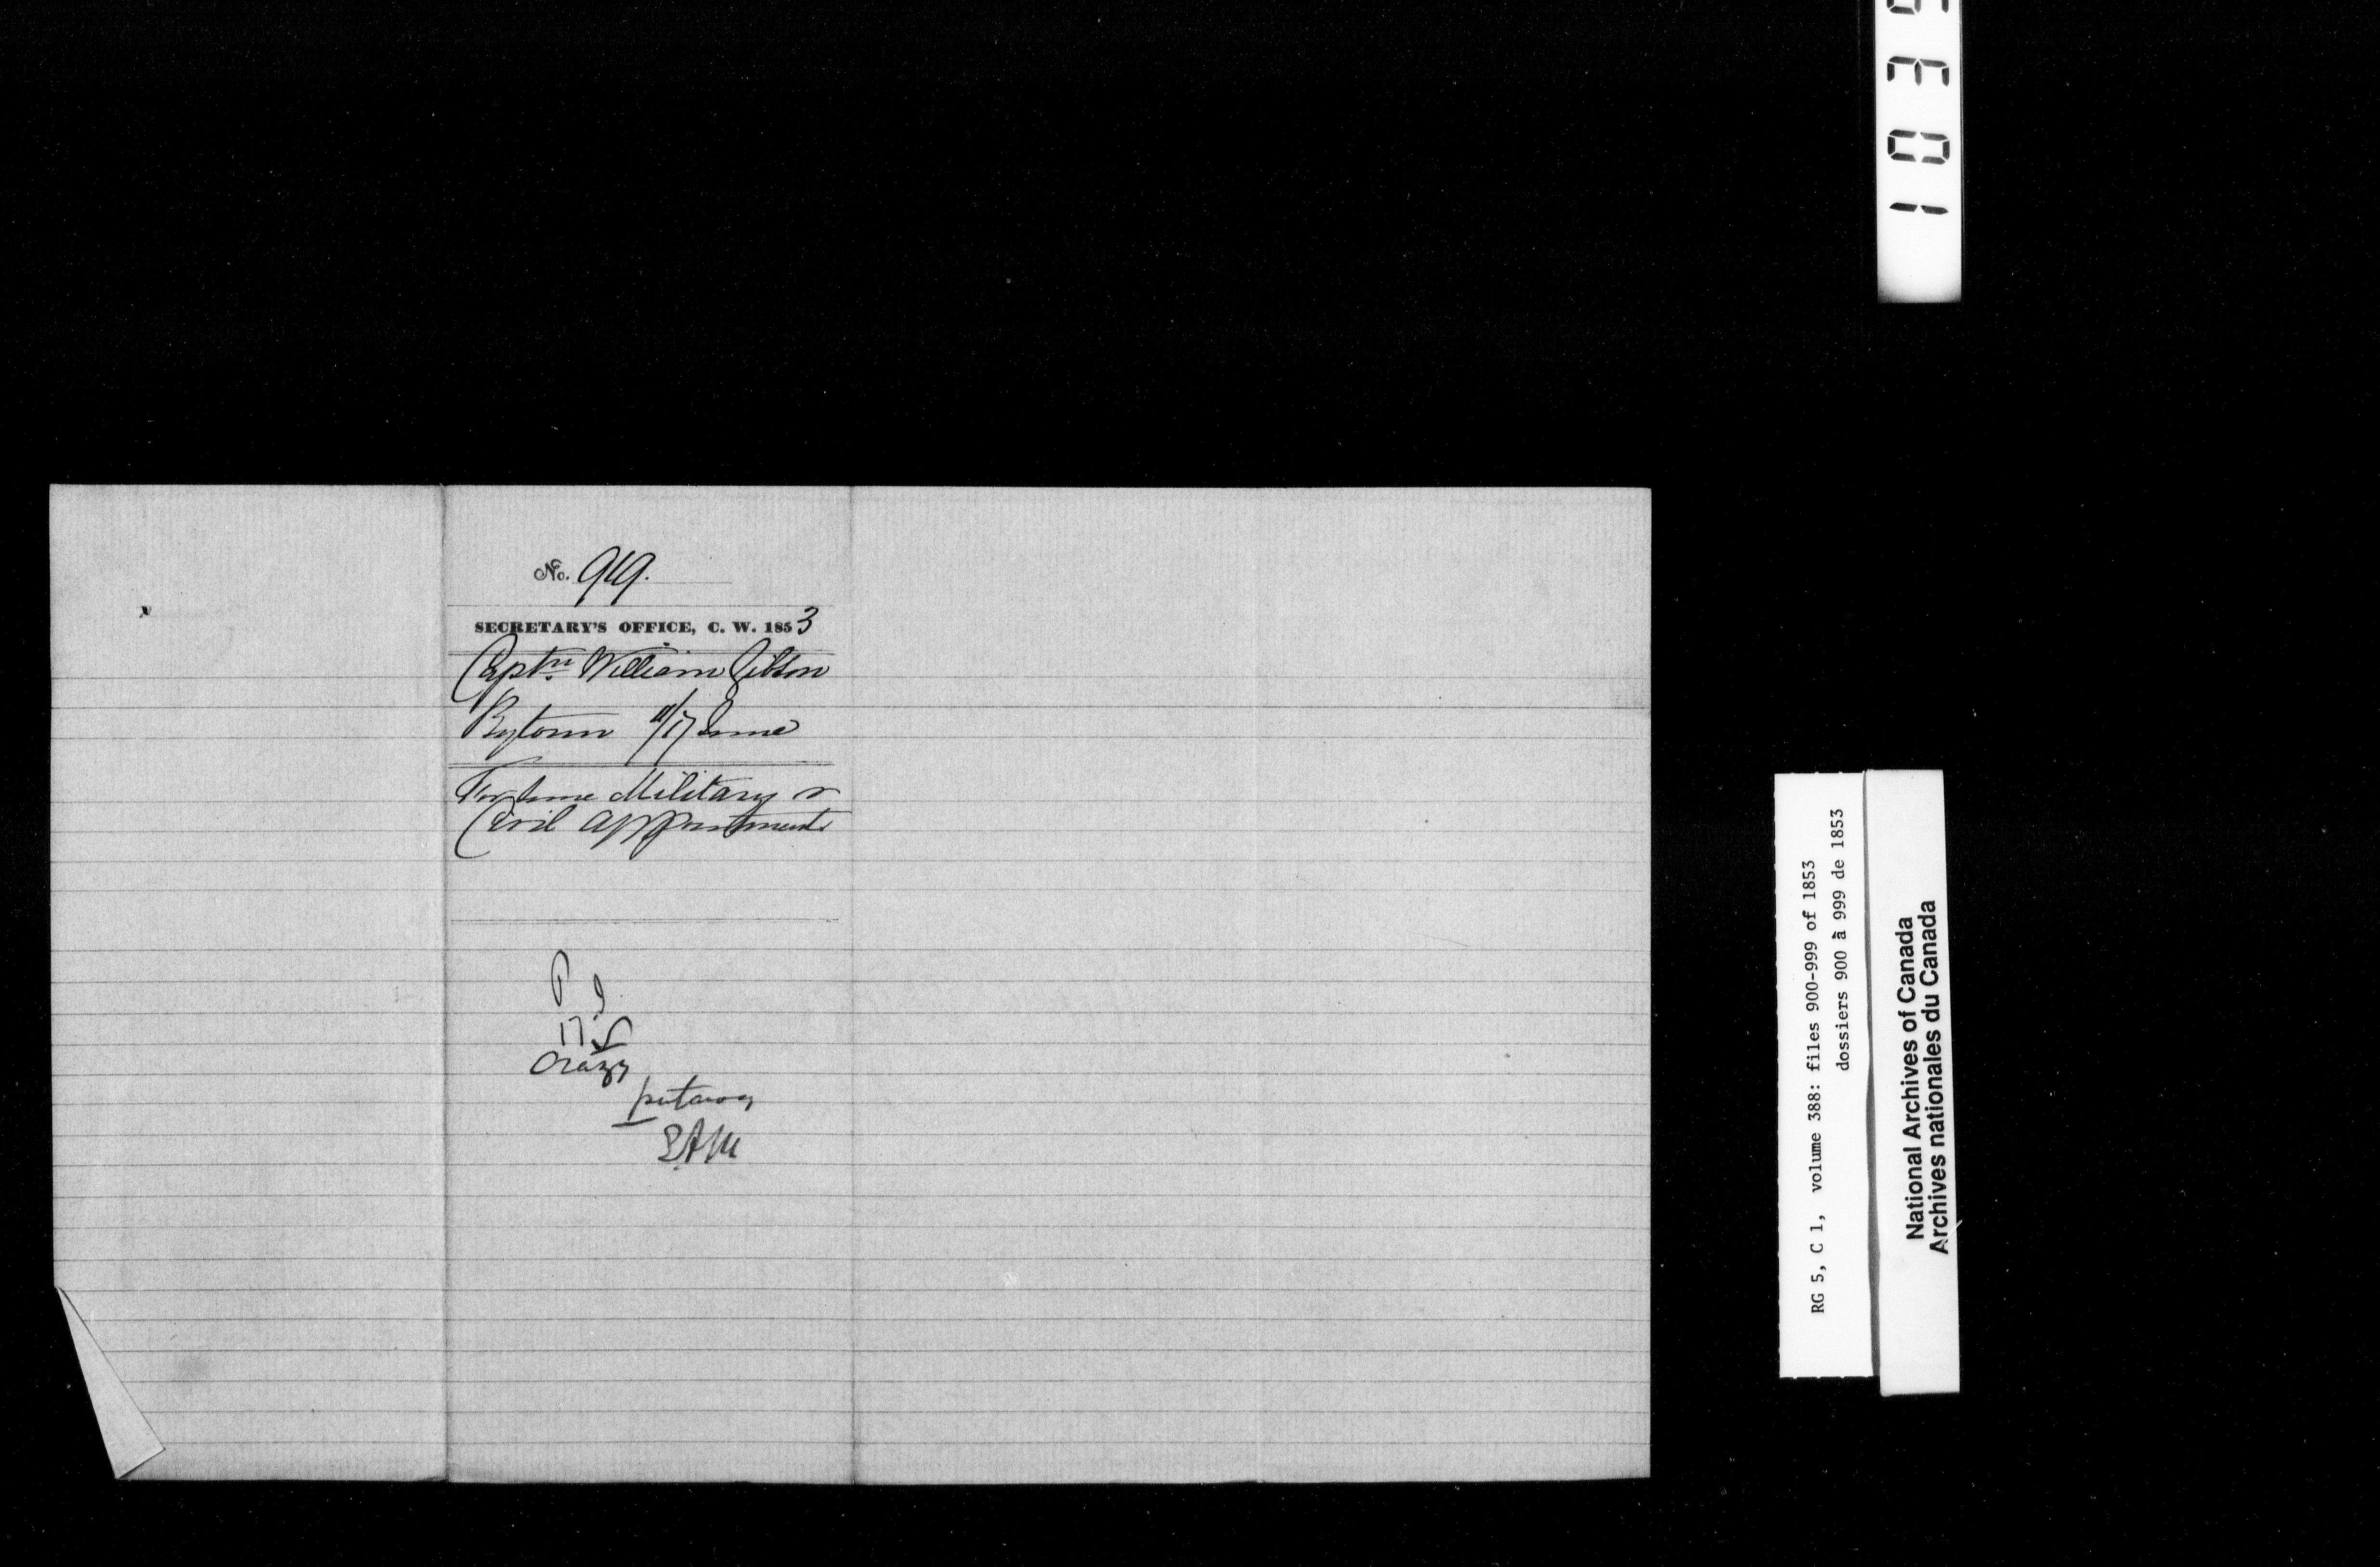 No. 919.
SECRETARY'S OFFICE, C. W. 1853
Captn. William Gibson
Bytown 11/17 June
For some Military or
Civil appointment
P
17
Crazy
putaway
103
RG 5, C 1, volume 388: files 900-999 of 1853
dossiers 900 à 999 de 1853
National Archives of Canada
Archives nationales du Canada